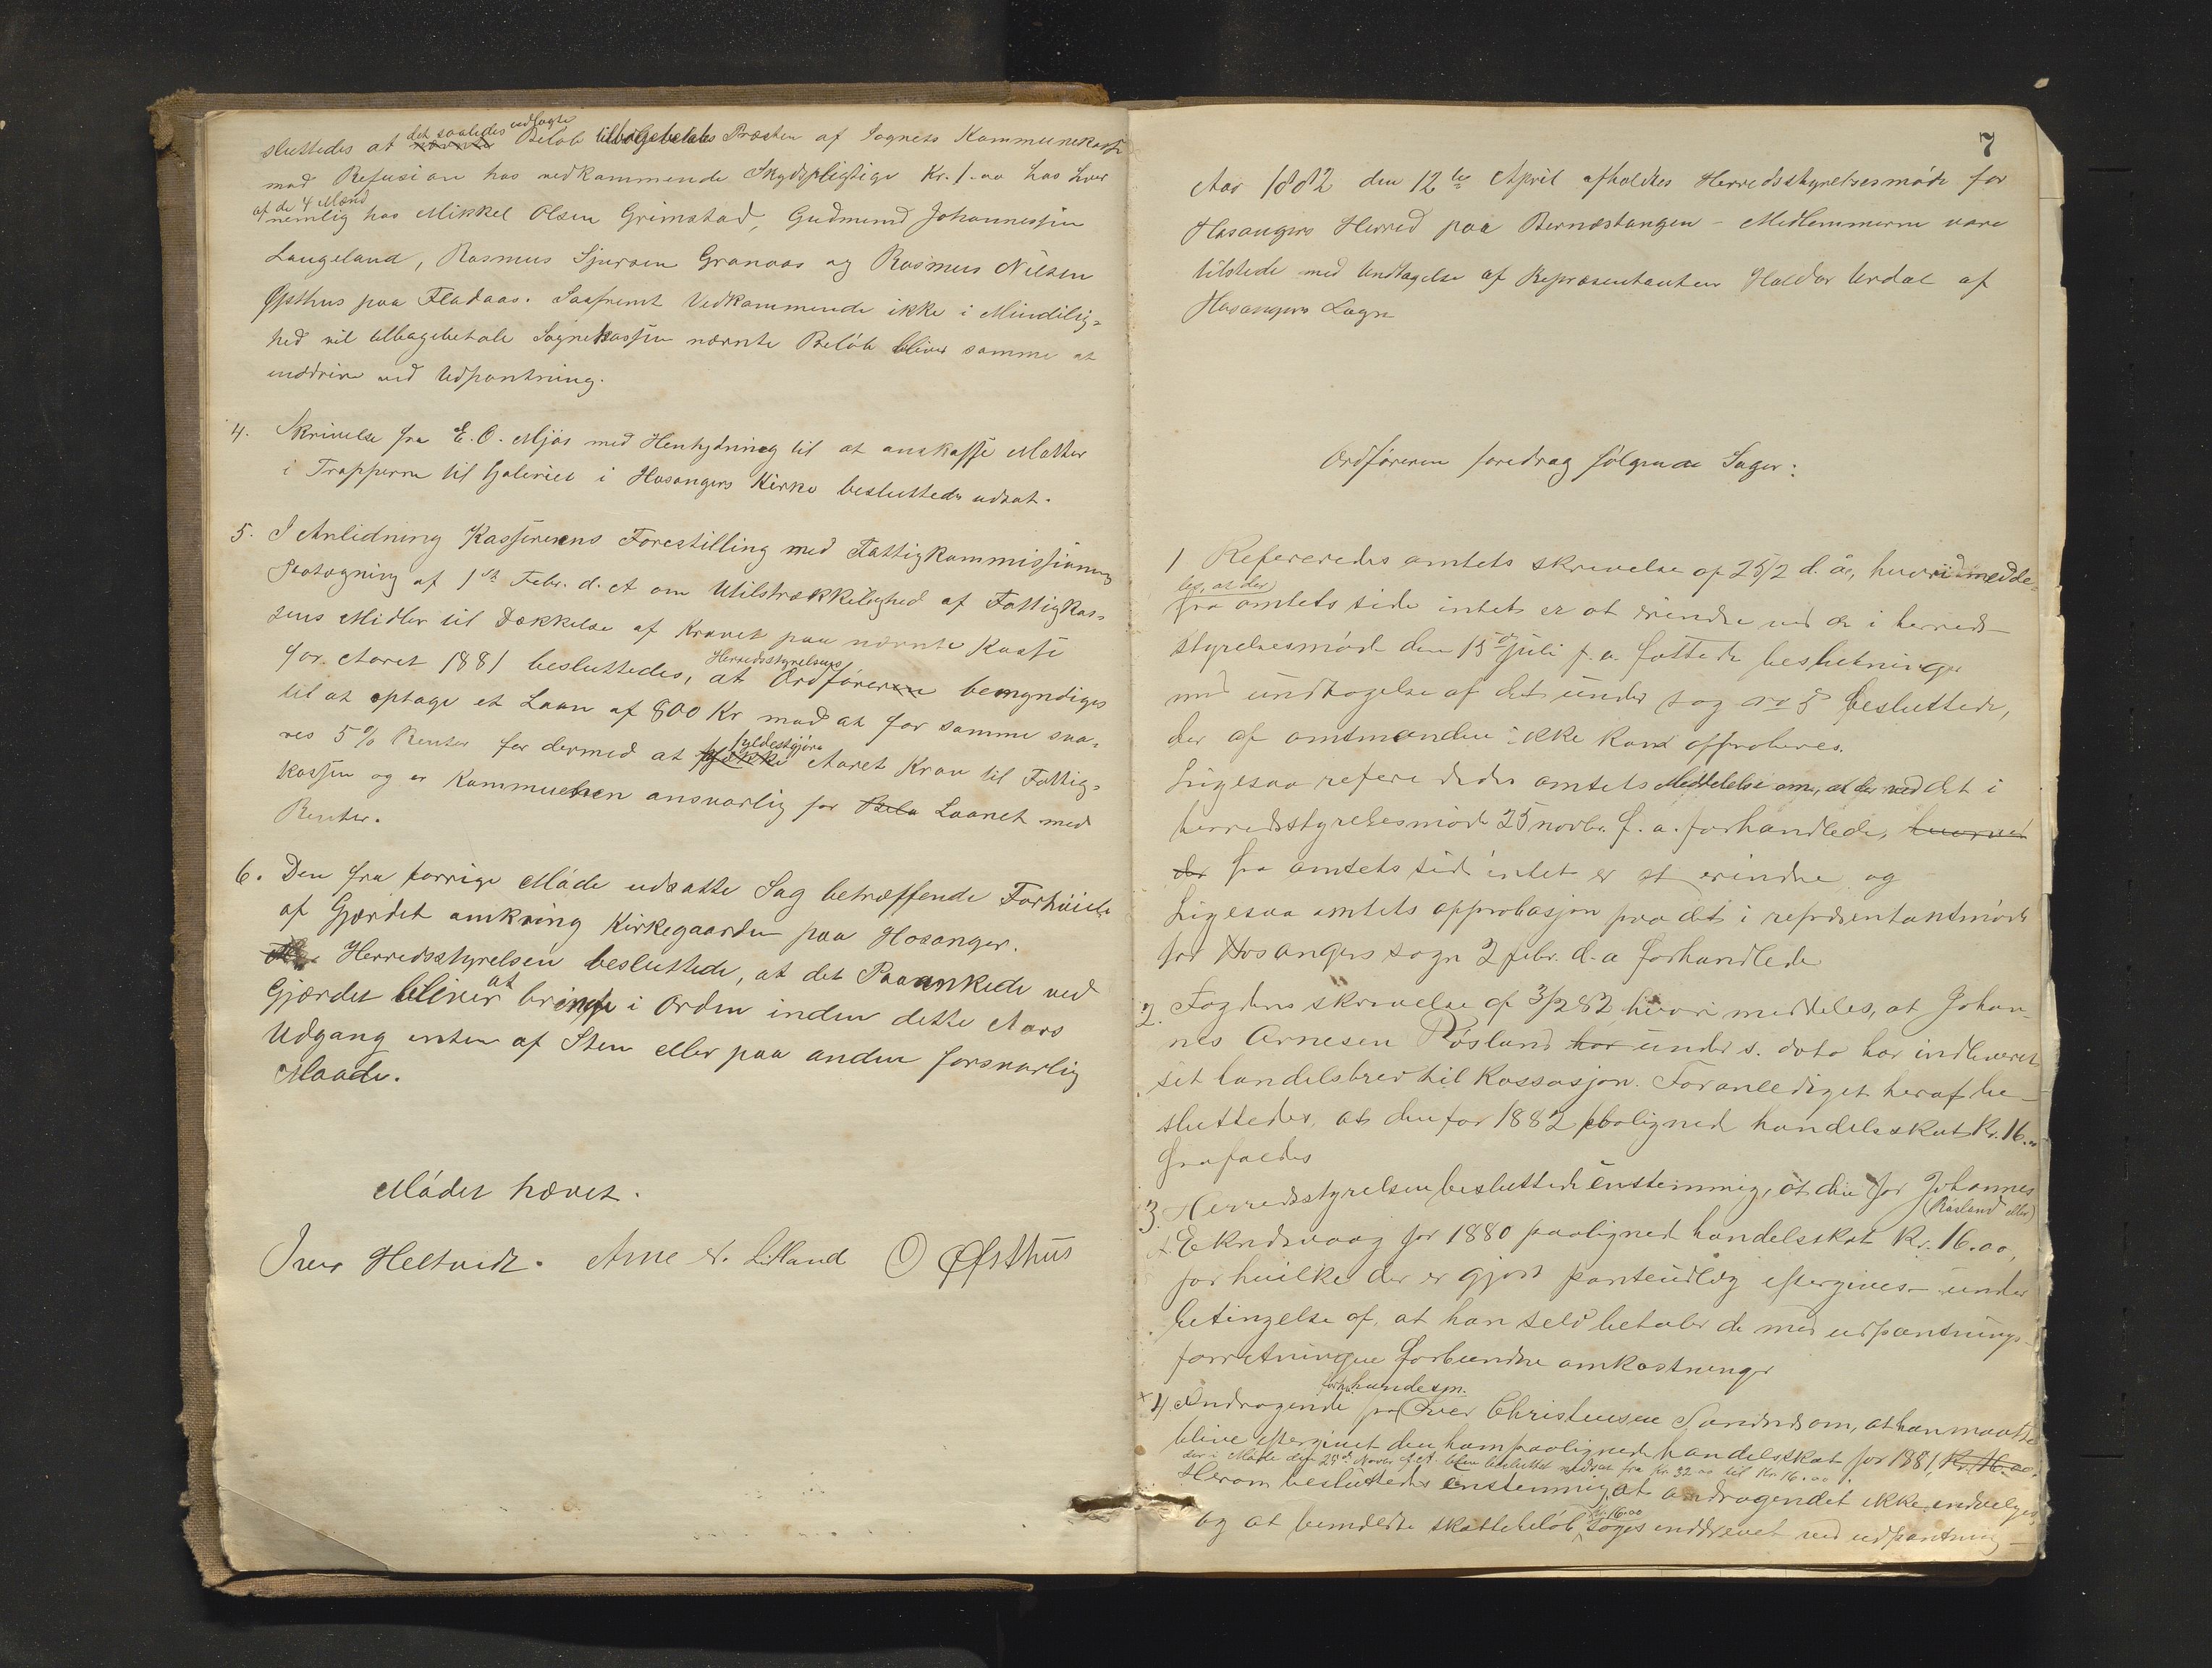 sluttedes at det saaledes udlagte Beløb tilbagebetales Præsten af Sognets Kommunekasse
mod Refusion hos vedkommende Skydspligtige Kr. 1.00 hos hver
af de 4 Mænd
nemlig hos Mikkel Olsen Grimstad, Gudmund Johannessen
Langeland, Rasmus Sjursen Granaas og Rasmus Nilsen
Øpsthus paa Fladaas. Saafremt Vedkommende ikke i Mindelig=
hed vil tilbagebetale Sognekassen nævnte Beløb bliver samme at
inddrive ved Udpantning.
4. Skrivelse fra E. O. Mjøs med Henhydning til at anskaffe Matter
i Trapperne til Galeriet i Hosangers Kirke besluttedes udsat.
5. I Anledning Kassererens Forestilling med Fattigkommissionens
Paategning af 1ste Febr. d. A om Utilstrækkelighed af Fattigkas=
sens Midler til Dækkelse af Kravet paa nævnte Kasse
for Aaret 1881 besluttedes, at Herredsstyrelsens Ordfører bemyndiges
til at optage et Laan af 800 Kr mod at for samme sva=
res 5 % Renter for dermed at fyldestgjøre Aaret Krav til Fattig=
kassen og er Kommunen ansvarlig for Laanet med
Renter.
6. Den fra forrige Møde udsatte Sag betræffende Forhøielse
af Gjærdet omkring Kirkegaarden paa Hosanger.
Herredsstyrelsen besluttede, at det Paaankede ved
Gjærdet bliver at bringe i Orden inden dette Aars
Udgang enten af Sten eller paa anden forsvarlig
Maade.
Mødet hævet.
Iver Heltvedt. Arne N. Litland O Øfsthus
7
Aar 1882 den 12te April afholdtes Herredsstyrelsesmøde for
Hosangers Herred paa Bernæstangen – Medlemmerne vare
tilstede med Undtagelse af Repræsentanten Haldor Urdal af
Hosangers Sogn
Ordføreren foredrag følgende Sager:
1 Refereredes amtets skrivelse af 25/2 d. å., hvori medde-
les, at der
fra amtets side intet er at erindre ved de i herreds-
styrelsesmøde den 15de Juli f. a. fattede beslutninger
med undtagelse af det under sag no 5 besluttede,
der af amtmanden ikke kan approberes.
Ligesaa refereredes amtets Meddelelse om, at der ved det i
herredsstyrelsesmøde 25 novbr. f. a. forhandlede, hvorved
der fra amtets side intet er at erindre og
Ligesaa amtets approbasjon paa det i repræsentantmøde
for Hosangers sogn 2 febr. d. a forhandlede
2. Fogdens skrivelse af 3/2 82, hvori meddeles, at Johan-
nes Arnesen Røsland har under s. dato har indleveret
sit handelsbrev til Kassasjon. Foranlediget heraf be-
sluttedes, at den for 1882 paalignede handelsskat Kr. 16.00
frafaldes
3. Herredsstyrelsen besluttede enstemmig, at den for Johannes
(Røsland eller)
A. Eknesvaag for 1880 paalignede handelsskat Kr. 16.00,
for hvilke der er gjort panteudlæg eftergives under
betingelse af, at han selv betaler de med udpantnings-
forretningen forbundne omkostninger
4. Andragende fra forh. handesm. Iver Christensen Sundnes om, at han maatte
blive eftergivet den ham paalignede handelsskat for 1881, Kr. 16.00.
der i Møde den 25de Novbr. f. A. blev besluttet nedsat fra Kr. 32.00 til Kr. 16.00.
Herom besluttedes enstemmig, at andragendet ikke indvilges,
og at bemeldte skattebeløb Kr. 16.00 søges inddrevet ved udpantning –